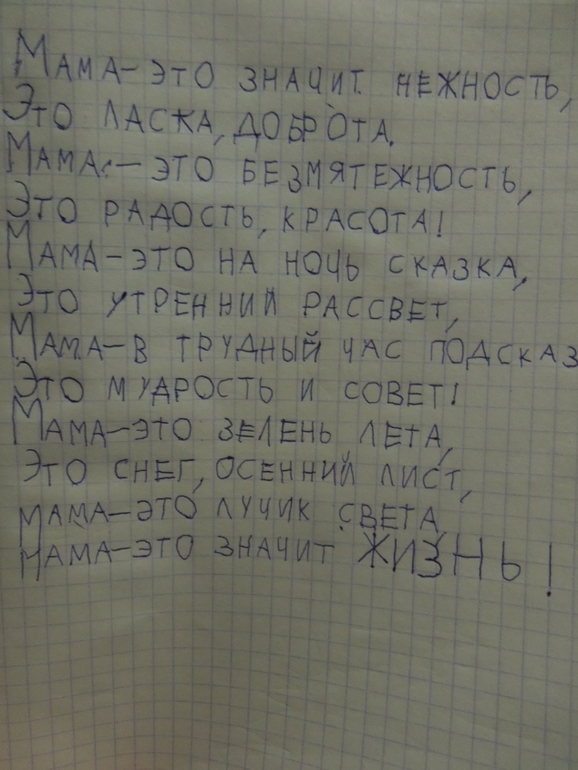 МАМА-ЭТО ЗНАЧИТ НЕЖНОСТЬ,
ЭТО ЛАСКА, ДОБРОТА.
МАМА-ЭТО БЕЗМЯТЕЖНОСТЬ,
ЭТО РАДОСТЬ, КРАСОТА!
МАМА-ЭТО НА НОЧЬ СКАЗКА,
ЭТО УТРЕННИЙ РАССВЕТ,
МАМА-В ТРУДНЫЙ ЧАС ПОДСКАЗ
ЭТО МУДРОСТЬ И СОВЕТ!
МАМА-ЭТО ЗЕЛЕНЬ ЛЕТА,
ЭТО СНЕГ, ОСЕННИЙ ЛИСТ,
МАМА-ЭТО ЛУЧИК СВЕТА,
МАМА-ЭТО ЗНАЧИТ ЖИЗНЬ!